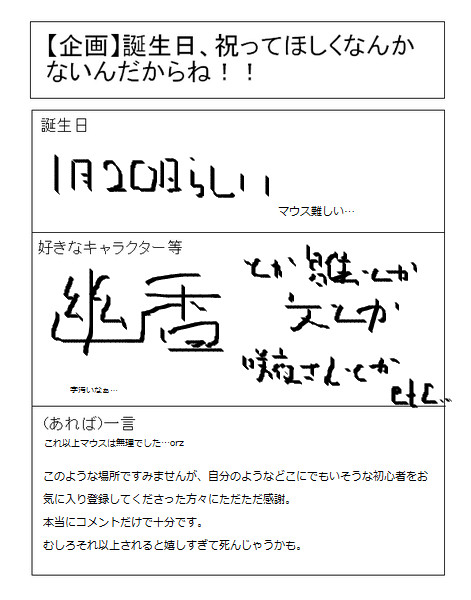 【企画】誕生日、祝ってほしくなんか
ないんだからね！！
誕生日
1月20日らしい
マウス難しい…
好きなキャラクター等
幽香
とか雛とか
文とか
咲夜さんとか
etc...
字汚いなぁ…
(あれば)一言
これ以上マウスは無理でした…orz
このような場所ですみませんが、自分のようなどこにでもいそうな初心者をお
気に入り登録してくださった方々にただただ感謝。
本当にコメントだけで十分です。
むしろそれ以上されると嬉しすぎて死んじゃうかも。